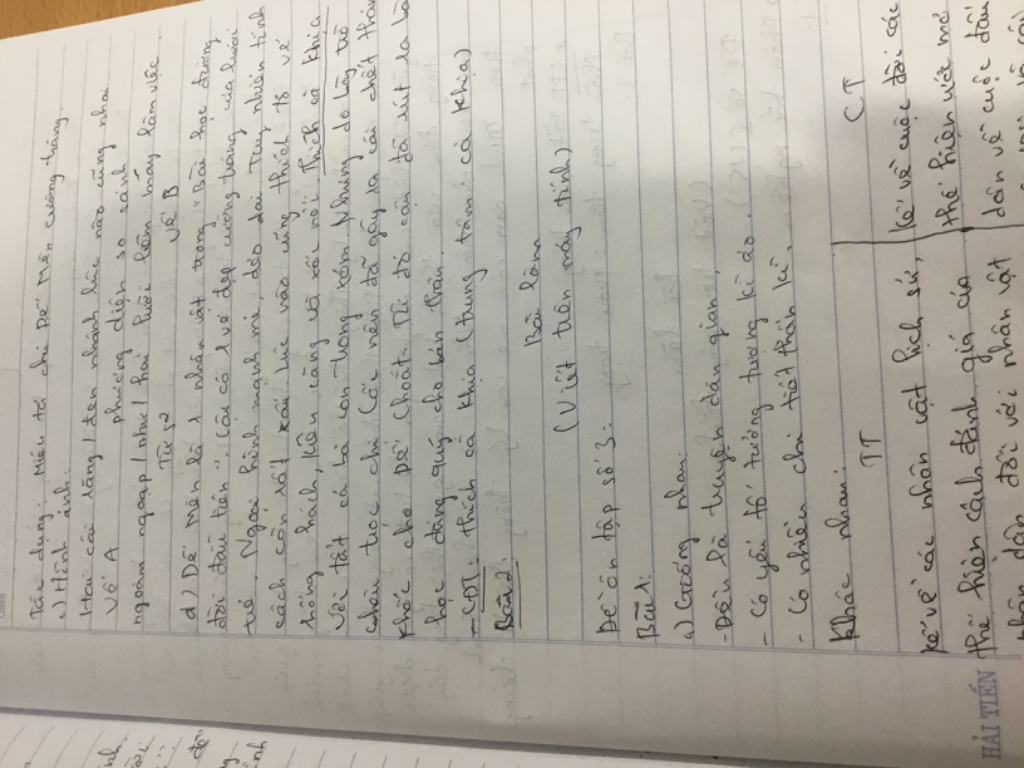 Tác dụng: Miêu tả chú Dế Mèn cường tráng.
c) Hình ảnh:
Hai cái răng / đen nhánh lúc nào cũng nhai
Vế A phương diện so sánh
ngoàm ngoạp / như / hai lưỡi liềm máy làm việc
Từ s² Vế B
d) Dế Mèn là 1 nhân vật trong "Bài học đường
đời đầu tiên". Cậu có 1 vẻ đẹp cường tráng của tuổi
trẻ. Ngoại hình mạnh mẽ, dẻo dai. Tuy nhiên tính
cách còn rất xấu lúc nào cũng thích tỏ vẻ
hống hách, kiêu căng và xốc nổi. Thích cà khịa
với tất cả bà con trong xóm. Nhưng do lòng
chòi cậu nên đã gây ra cái chết thảm
khốc cho Dế Choắt. Từ đó cậu đã rút ra bài
học đáng quý cho bản thân.
- CDT: thích cà khịa (trung tâm: cà khịa)
Bài 2: Bài làm
(Viết trên máy tính)
Đề ôn tập số 3:
Bài 1:
a) Giống nhau:
- Đều là truyện dân gian
- Có yếu tố tưởng tượng kì ảo.
- Có nhiều chi tiết thần kì.
Khác nhau:
TT CT
Kể về các nhân vật lịch sử, Kể về cuộc đời các
thể hiện cách đánh giá của thể hiện ước mơ
nhân dân đối với nhân vật dân về cuộc đấu
HẢI TIẾN